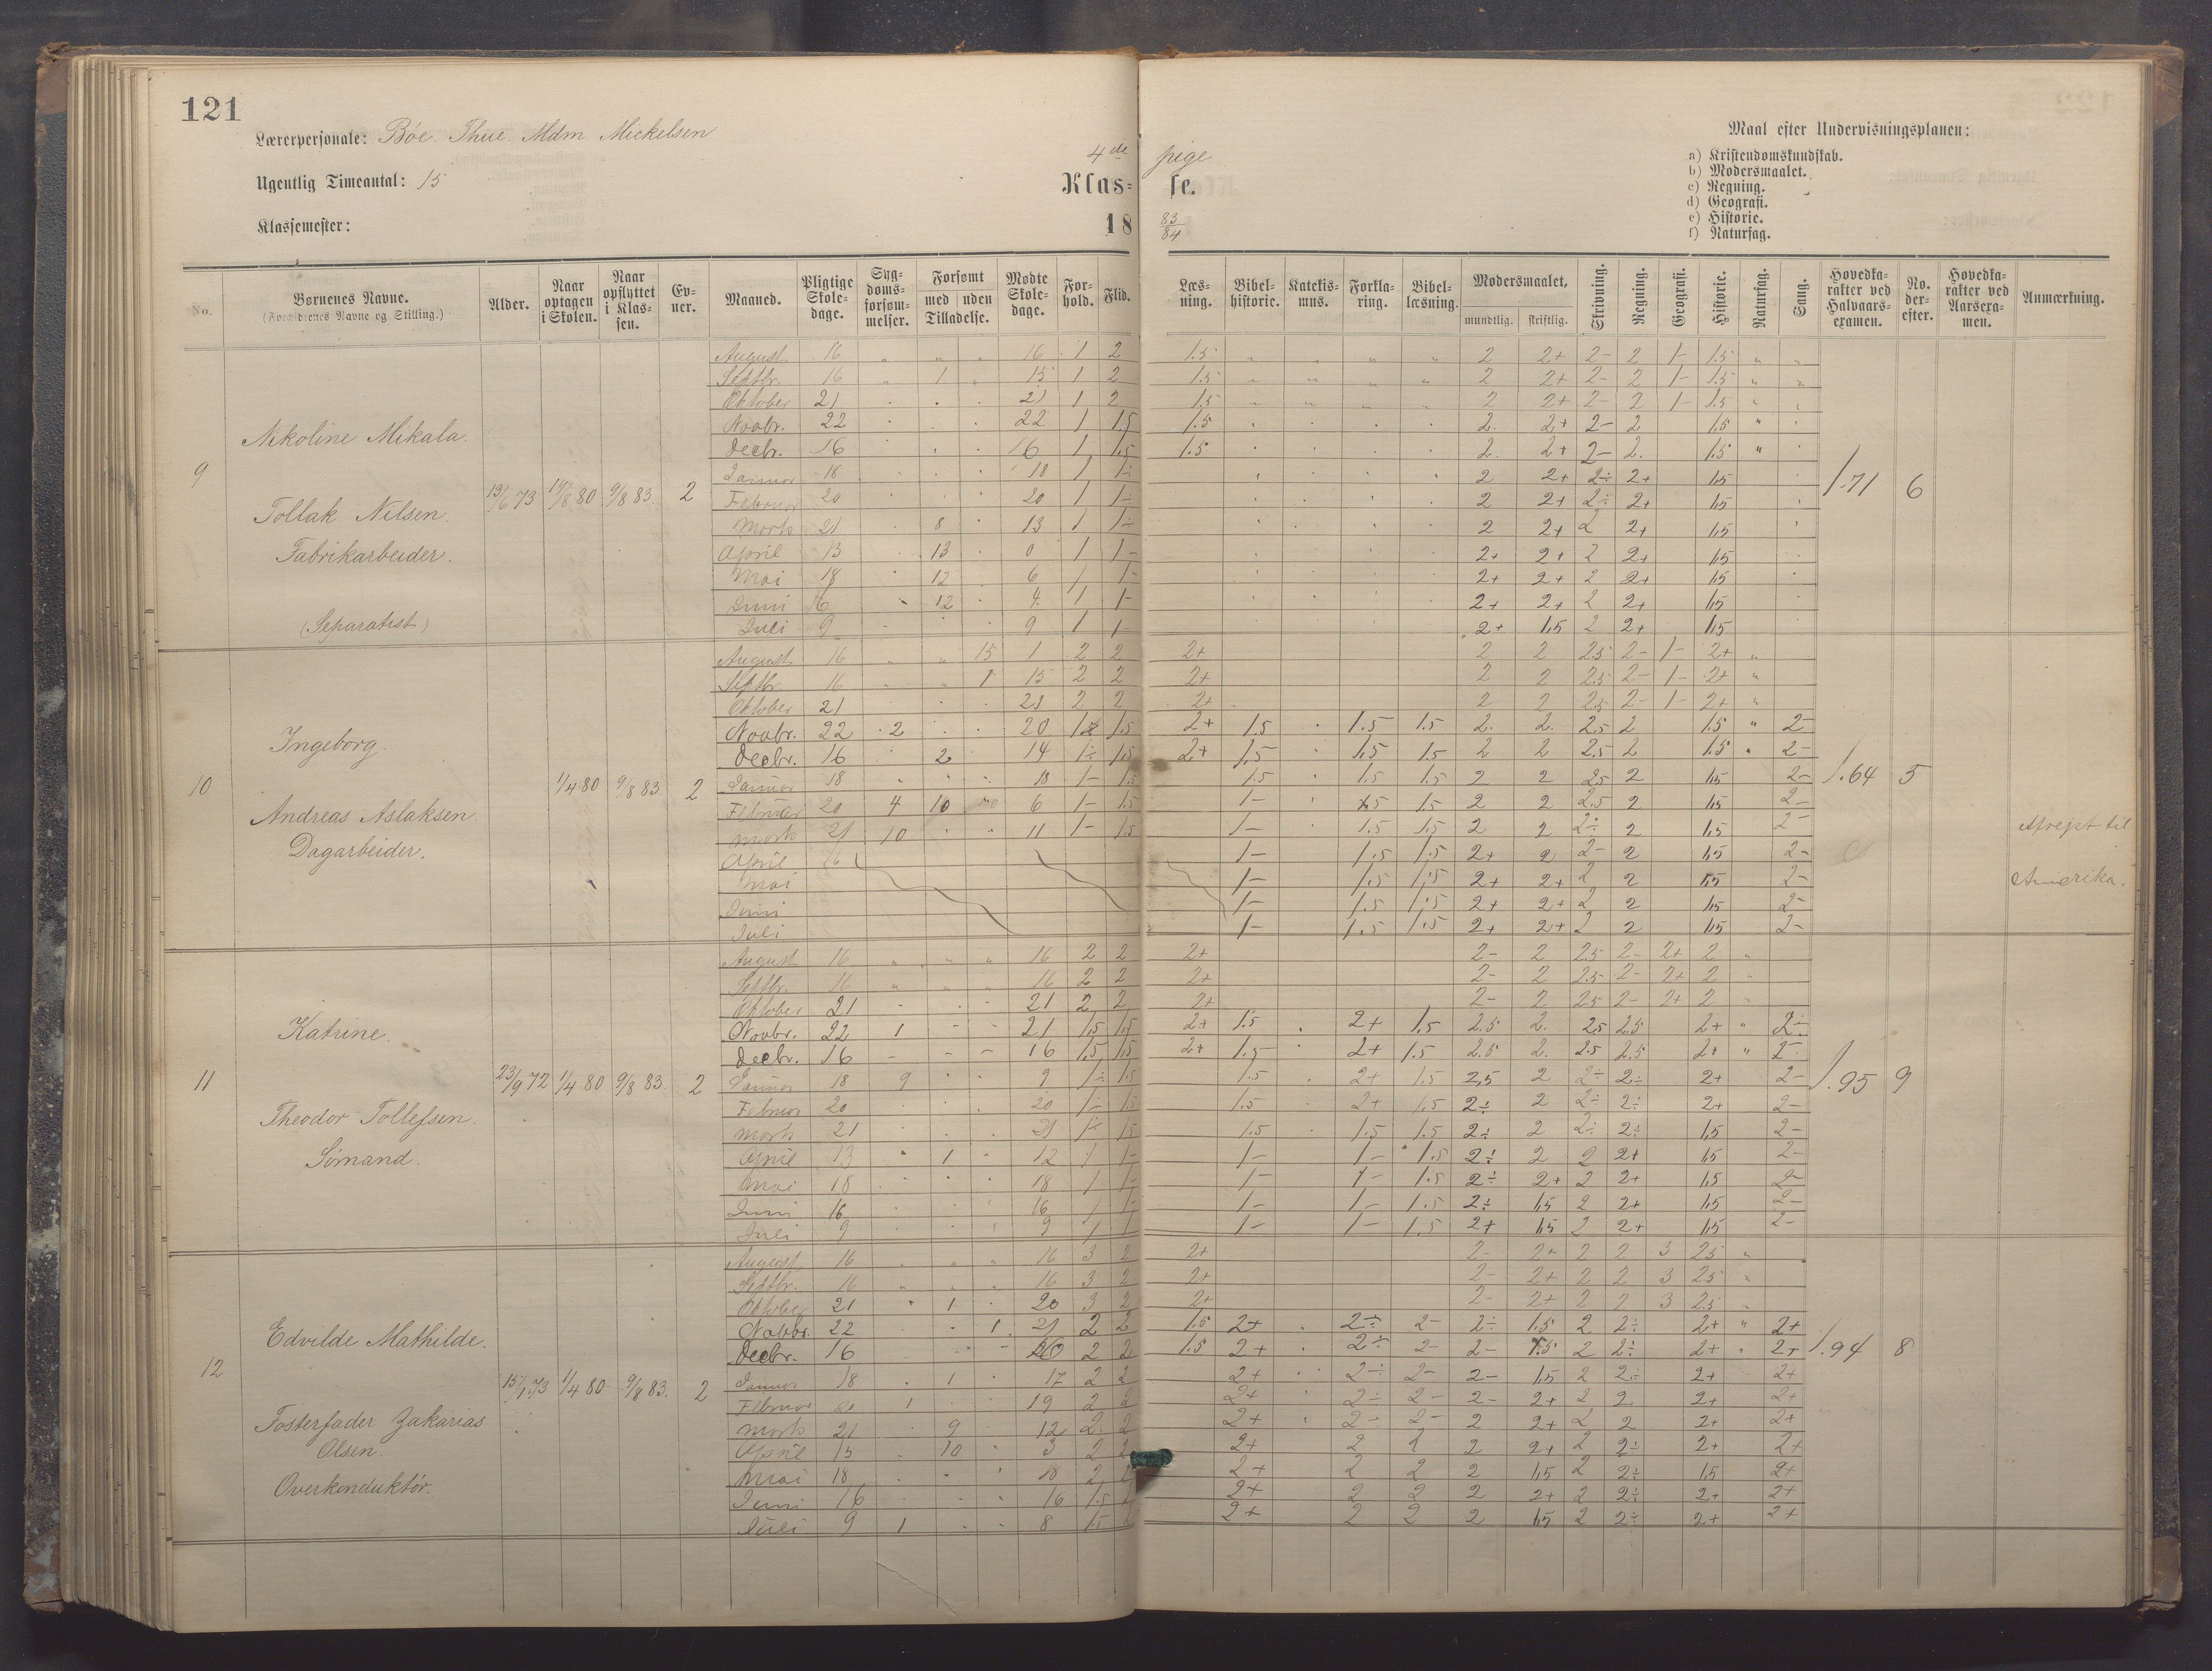 121
Lærerpersonale: Bóe. Thue. Mdm Mickelsen
Ugentlig Timeantal: 15
Klassemester:
4de pige
Klas- se.
18 83/84
Maal efter Undervisningsplanen:
a) Kristendomskundskab.
b) Modersmaalet.
c) Regning.
d) Geografi.
e) Historie.
f) Naturfag.
No. Børnenes Navne. (Forældrenes Navne og Stilling.) Alder. Naar optagen i Skolen. Naar opflyttet i Klassen. Evner. Maaned. Pligtige Skoledage. Sygdomsforsømmelser. Forsømt med uden Tilladelse. Mødte Skoledage. Forhold. Flid. Læsning. Bibelhistorie. Katekismus. Forklaring. Bibellæsning. Modersmaalet. mundtlig. skriftlig. Skrivning. Regning. Geografi. Historie. Naturfag. Sang. Hovedkarakter ved Halvaarsexamen. No. derefter. Hovedkarakter ved Aarsexamen. Anmærkning.
9 Nikoline Mikala.
Tollak Nilsen.
Fabrikarbeider.
(Separatist)
13/6 73 19/8 80 9/8 83. 2
August 16 " " " 16 1 2 1.5 " " " " 2 2+ 2- 2 1- 1.5 " "
Septbr. 16 " 1 " 15 1 2 1.5 " " " " 2 2+ 2- 2 1- 1.5 " "
Oktober 21 . . . 21 1 2 1.5 " " " " 2 2+ 2- 2 1- 1.5 " "
Novbr. 22 . . . 22 1 1.5 1.5 . . . . 2. 2+ 2- 2 1.5 " .
Decbr. 16 . . . 16 1 1,5 1.5 . . . . 2. 2+ 2- 2. 1.5 " .
Januar 18 . . . 18 1 1÷ 2 2+ 2÷ 2+ 1,5
Februar 20 . . . 20 1 1÷ 2 2+ 2÷ 2+ 1,5
Marts 21 . 8 . 13 1 1÷ 2 2+ 2 2+ 1,5
April 13 . 13 . 0 1 1- 2+ 2+ 2 2+ 1,5
Mai 18 . 12 . 6 1 1- 2+ 2+ 2 2+ 1,5
Juni 16 . 12 . 4. 1 1- 2+ 2+ 2 2+ 1,5
Juli 9 . . . 9 1 1- 2+ 1,5 2 2+ 1,5
1.71 6
10 Ingeborg.
Andreas Aslaksen.
Dagarbeider.
1/4 80 9/8 83 2
August 16 " " 15 1 2 2 2+ 2 2 2.5 2- 1- 2+ "
Septbr. 16 " " 1 15 2 2 2+ 2 2 2.5 2- 1- 2+ "
Oktober 21 . . . 21 2 2 2+ 2 2 2.5 2- 1- 2+ "
Novbr. 22 2 . . 20 1.5 2+ 1.5 . 1.5 1.5 2. 2. 2.5 2 1.5 " 2-
Decbr. 16 . 2 . 14 1÷ 1,5 2+ 1.5 . 1.5 1.5 2 2 2.5 2 1.5 " 2-
Januar 18 . . . 18 1- 1.5 1.5 . 1.5 1.5 2 2 2.5 2 1,5 2-
Februar 20 4 10 6 1- 1.5 1- . 1.5 1.5 2 2 2.5 2 1,5 2-
Marts 21 10 . . 11 1- 1.5 1- 1.5 1.5 2 2 2÷ 2 1,5 2-
April 1- 1.5 1.5 2+ 2 2- 2 1,5 2-
Mai 1- 1.5 1.5 2+ 2+ 2 2 1,5 2-
Juni 1- 1.5 1.5 2+ 2+ 2 2 1,5 2-
Juli 1- 1.5 1.5 2+ 2+ 2 2 1,5 2-
1.64 5
Afrejst til
Amerika.
11 Katrine.
Theodor Tollefsen.
Sómand.
23/9 72 1/4 80 9/8 83. 2
August 16 " " " 16 2 2 2+ 2- 2 2.5 2- 2+ 2 "
Septbr. 16 " " " 16 2 2 2+ 2- 2 2.5- 2- 2+ 2 "
Oktober 21 - . - 21 2 2 2+ 2- 2 25 2- 2+ 2 "
Novbr. 22 1 - - 21 1,5 1,5 2+ 1.5 . 2+ 1.5 2.5 2. 2,5 2.5 2+ " 2÷
Decbr. 16 - - - 16 1,5 1,5 2+ 1.5 . 2+ 1.5 2.5 2. 2.5 2.5 2+ " 2-
Januar 18 9 . . 9 1÷ 1.5 1.5 . 2+ 1.5 2,5 2 2÷ 2÷ 2+ 2-
Februar 20 . . . 20 1÷ 1.5 1.5 . 2+ 1.5 2÷ 2 2÷ 2÷ 2+ 2-
Marts 21 . . . 21 1÷ 1.5 1.5 . 1.5 1.5 2÷ 2 2÷ 2÷ 1,5 2-
April 13 " 1 " 12 1 1- 1- 1- 1.5 2÷ 2 2 2+ 1,5 2-
Mai 18 . . . 18 1 1- 1- 1- 1.5 2÷ 2+ 2 2+ 1,5 2-
Juni 16 . . . 16 1 1- 1- 1- 1.5 2÷ 1,5 2 2+ 1,5 2-
Juli 9 . . . 9 1 1 1- 1- 1.5 2+ 1,5 2 2+ 1,5 2-
1.95 9
12 Edvilde Mathilde.
Fosterfader Zakarias
Olsen.
Overkonduktór.
15/1 73 1/4 80 9/8 83. 2
August 16 " " " 16 3 2 2+ 2- 2+ 2 2 3 2.5 "
Septbr. 16 " " " 16 3 2 2+ 2- 2+ 2 2 3 2.5 "
Oktober 21 " 1 . 20 3 2 2+ 2- 2+ 2 2 3 2.5 "
Novbr. 22 . . 1 21 2 2 1.5 2+ . 2÷ 2- 2÷ 1.5 2 2÷ 2+ " 2+
Decbr. 16 . . - 2 2 1.5 2+ . 2÷ 2- 2- 1.5 2 2÷ 2+ " 2+
Januar 18 . 1 . 17 2 2 2+ . 2÷ 2- 2- 1,5 2 2÷ 2+ 2+
Februar 20 1 . . 19 2 2 2+ 2÷ 2- 2- 2+ 2 2 2+ 2+
Marts 21 . 9 . 12 2 2 2+ . 2÷ 2- 2 2+ 2 2 2+ 2+
April 13 . 10 . 3 2 2 2+ 2 2 2 2+ 2 2÷ 2+ 2+
Mai 18 . . . 18 2 2+ 2 2 2 1,5 2 2÷ 1,5 2+
Juni 16 . . . 16 1.5 2+ 2 2 2 2+ 2 2÷ 2+ 2+
Juli 9 1 . . 8 1.5 2+ 2 2 2 1,5 2 2÷ 2+ 2+
1.94 8